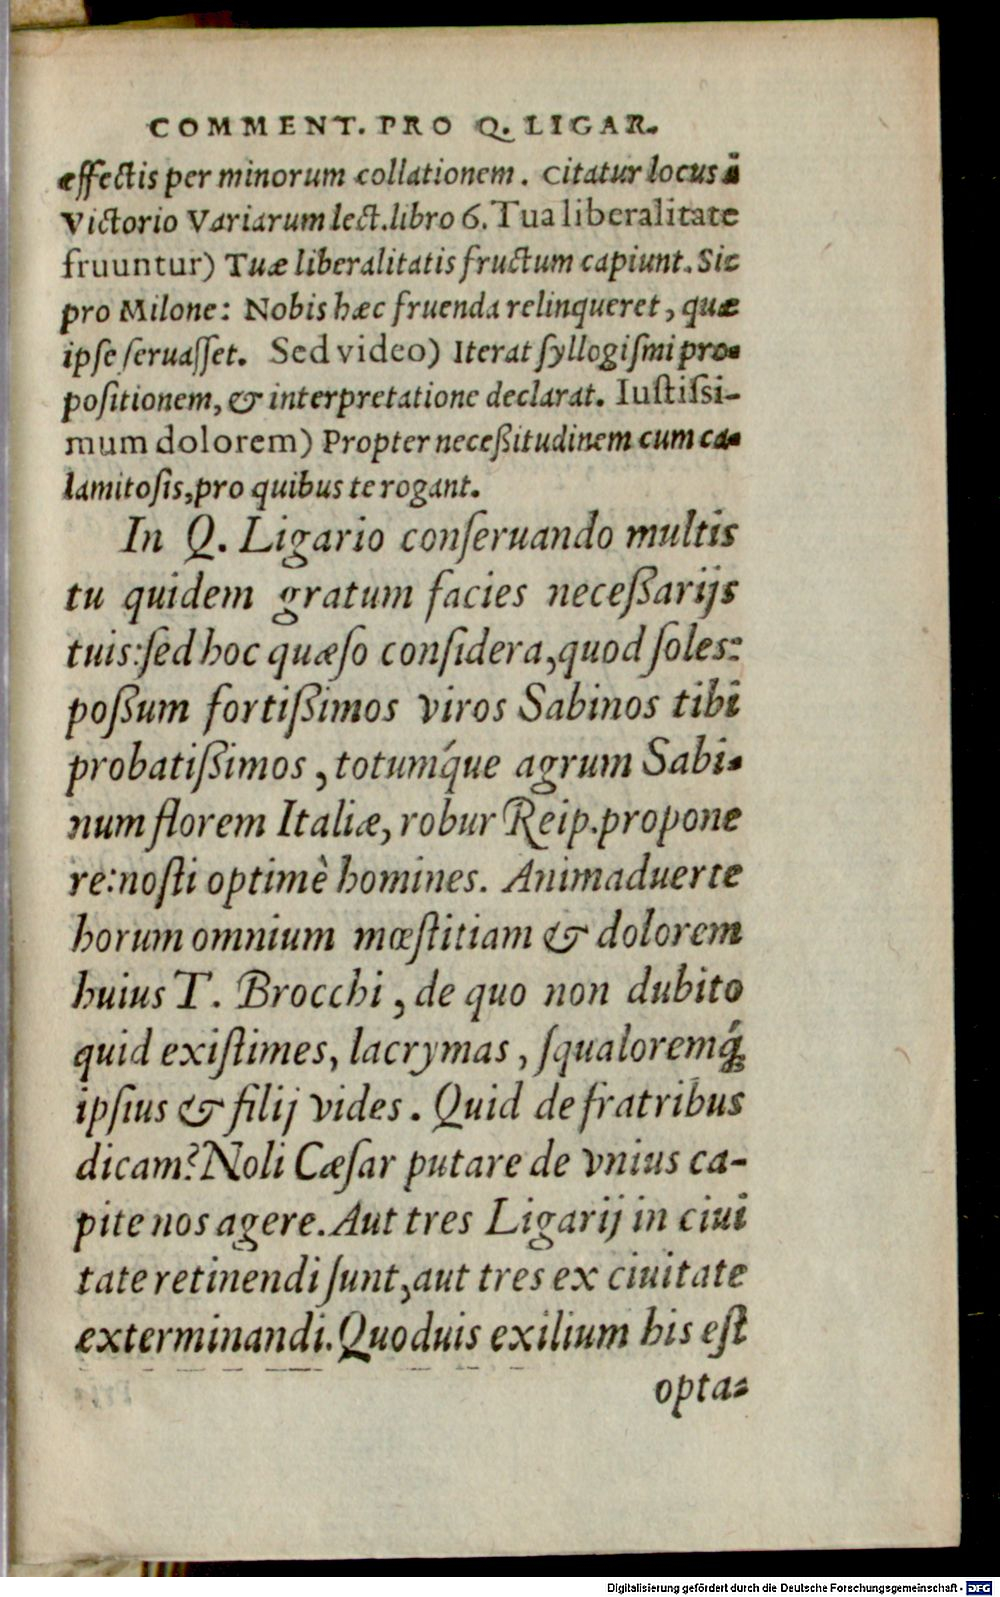 COMMENT. PRO Q. LIGAR.
effectis per minorum collationem. Citatur locus à
Victorio Variarum lect. libro 6. Tua liberalitate
fruuntur) Tuæ liberalitatis fructum capiunt. Sic
pro Milone: Nobis hæc fruenda relinqueret, quæ
ipſe ſeruaſſet. Sed video) Iterat ſyllogiſmi pro-
poſitionem, & interpretatione declarat. Iuſtiſsi-
mum dolorem) Propter neceßitudinem cum ca-
lamitoſis, pro quibus te rogant.
In Q. Ligario conſeruando multis
tu quidem gratum facies neceßarijs
tuis: ſed hoc quæſo conſidera, quod ſoles:
poßum fortißimos viros Sabinos tibi
probatißimos, totumq́ue agrum Sabi-
num florem Italiæ, robur Reip. propone
re: noſti optimè homines. Animaduerte
horum omnium mœſtitiam & dolorem
huius T. Brocchi, de quo non dubito
quid exiſtimes, lacrymas, ſqualoremq́;
ipſius & filij vides. Quid de fratribus
dicam? Noli Cæſar putare de vnius ca-
pite nos agere. Aut tres Ligarij in ciui
tate retinendi ſunt, aut tres ex ciuitate
exterminandi. Quoduis exilium his eſt
opta-
Digitalisierung gefördert durch die Deutsche Forschungsgemeinschaft - DFG